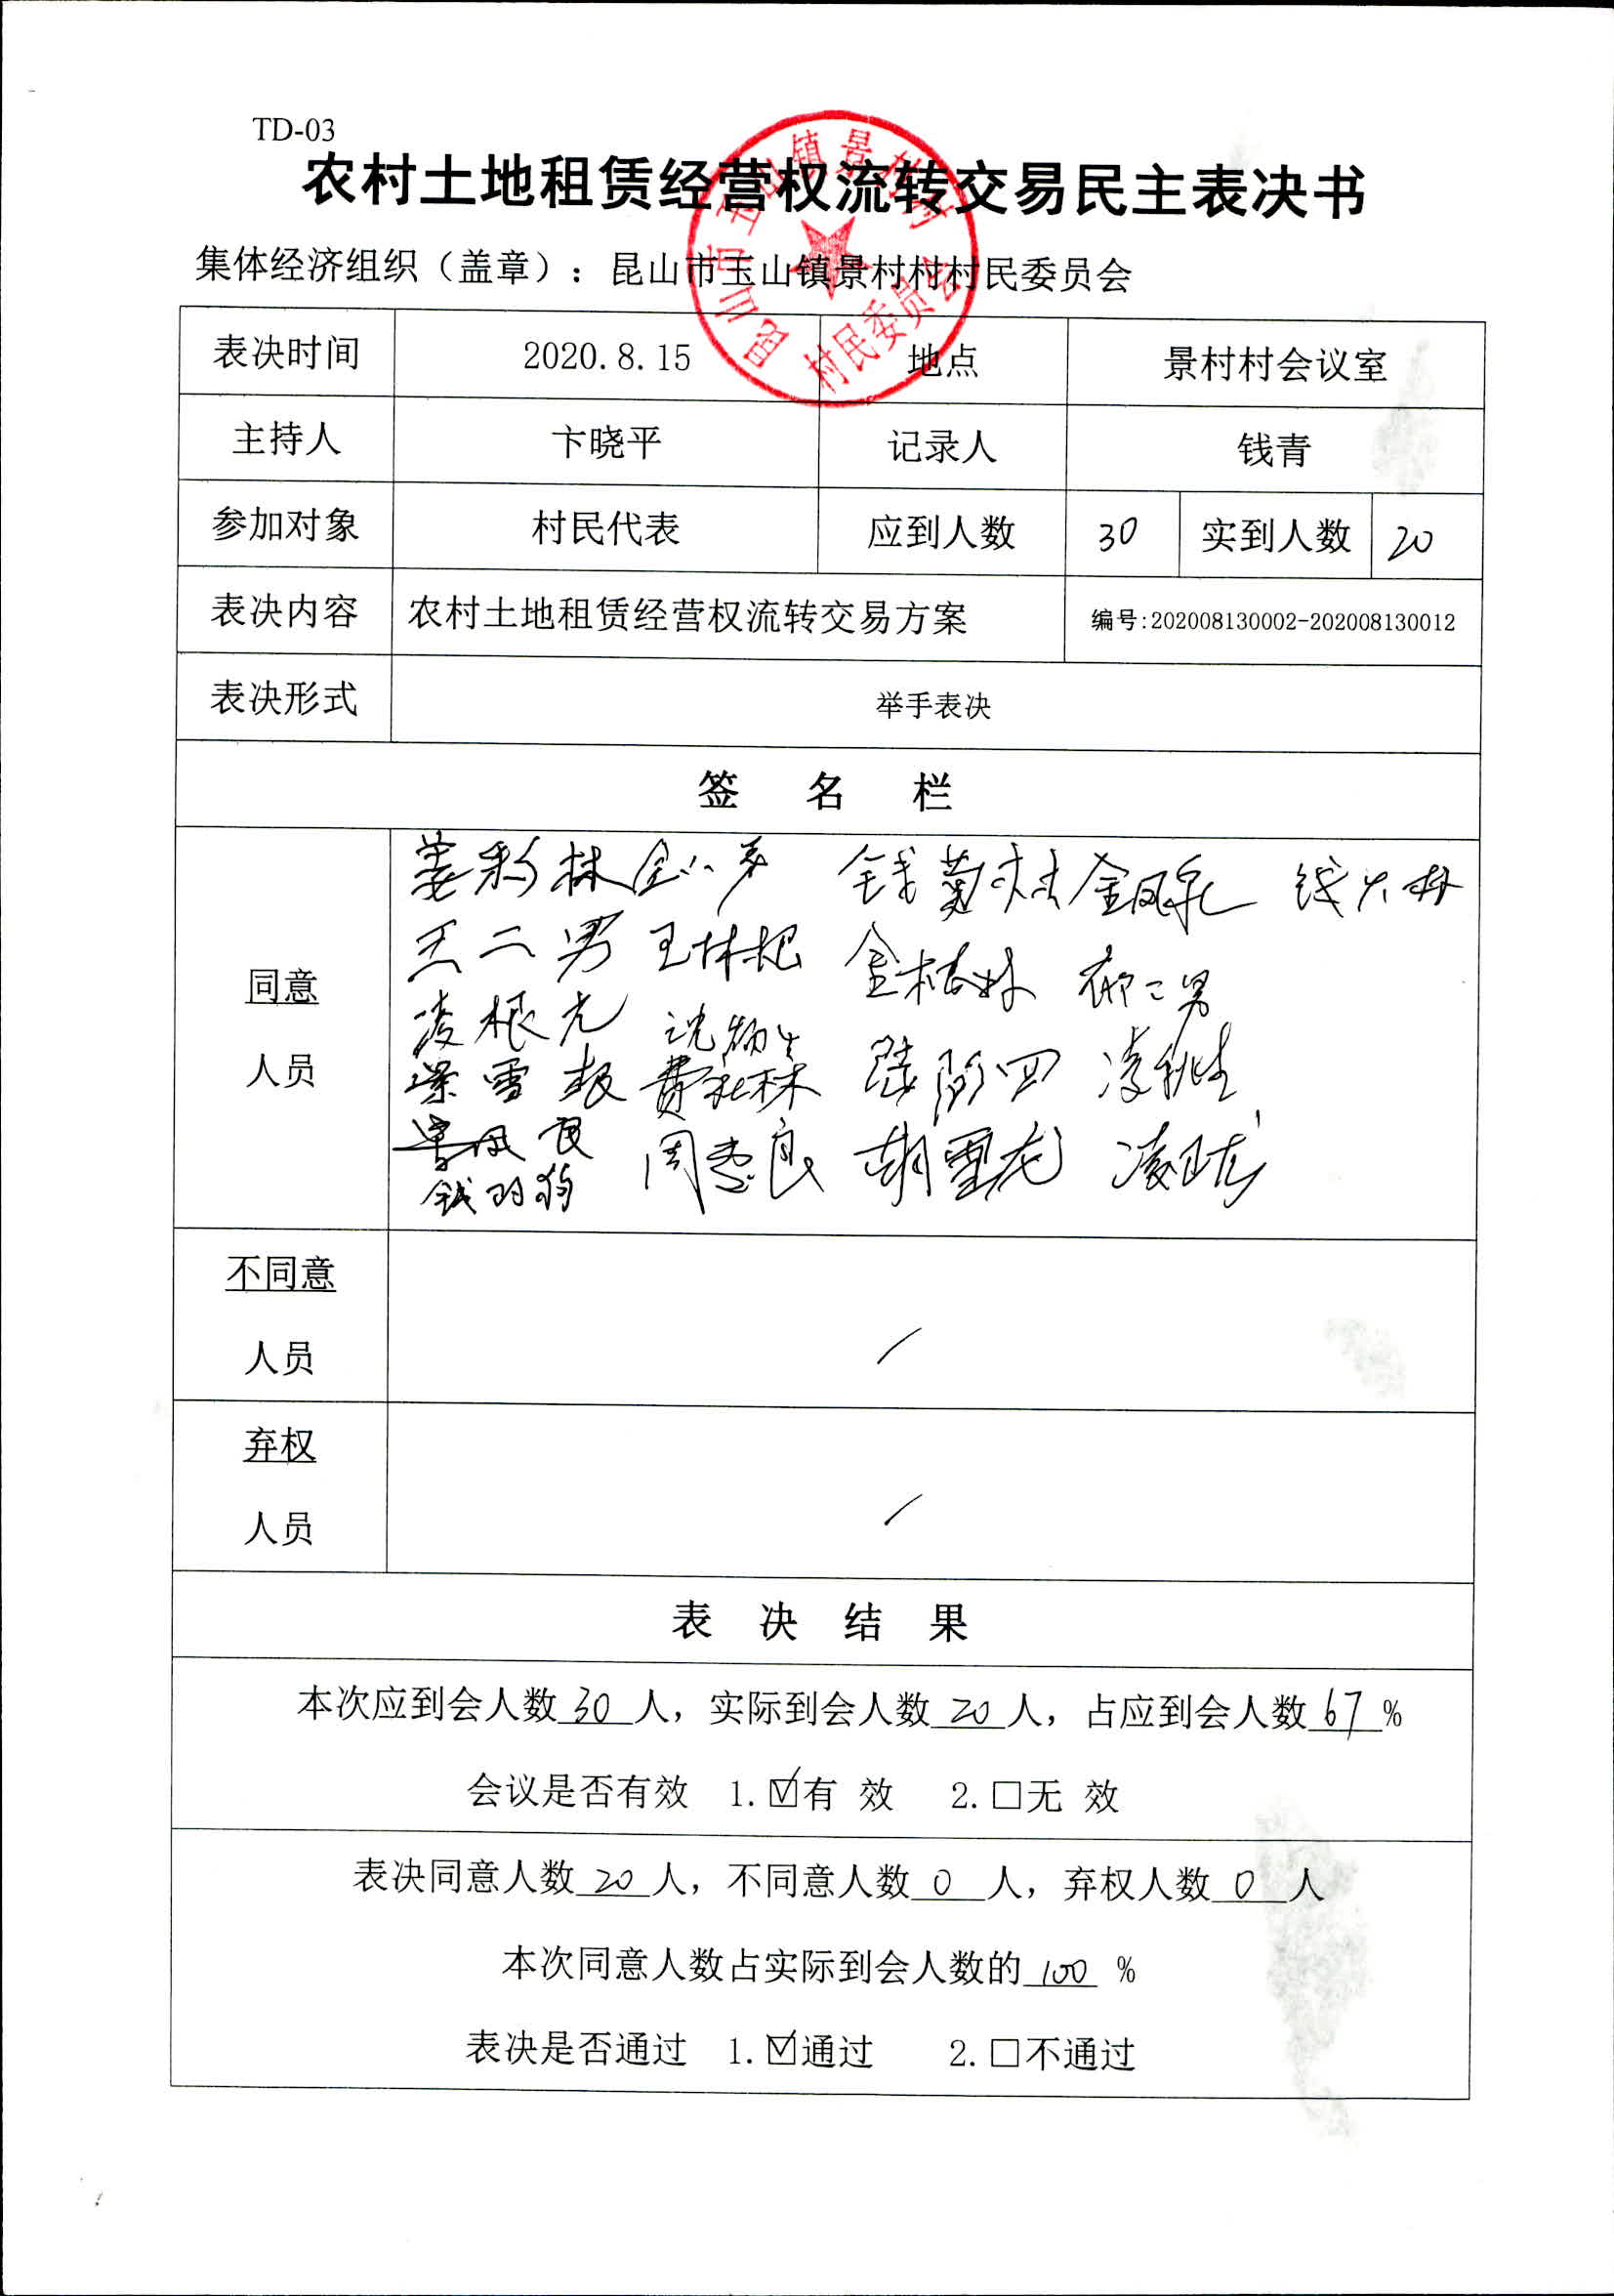 TD-03
农村土地租赁经营权流转交易民主表决书
集体经济组织（盖章）：昆山市玉山镇景村村村民委员会
昆山市玉山镇景村村
村民委员会
表决时间 2020.8.15 地点 景村村会议室
主持人 卞晓平 记录人 钱青
参加对象 村民代表 应到人数 30 实到人数 20
表决内容 农村土地租赁经营权流转交易方案 编号:202008130002-202008130012
表决形式 举手表决
签 名 栏
同意
人员
姜 林 金小 钱菊 金凤 钱 林
王二男 王林 金桂妹 二男
凌根
雪 费 林 陆 四 凌
凤良 周 良 胡雪龙 凌 龙
钱
不同意
人员 /
弃权
人员 /
表 决 结 果
本次应到会人数 30 人，实际到会人数 20 人，占应到会人数 67 %
会议是否有效 1.☑有 效 2.□无 效
表决同意人数 20 人，不同意人数 0 人，弃权人数 0 人
本次同意人数占实际到会人数的 100 %
表决是否通过 1.☑通过 2.□不通过